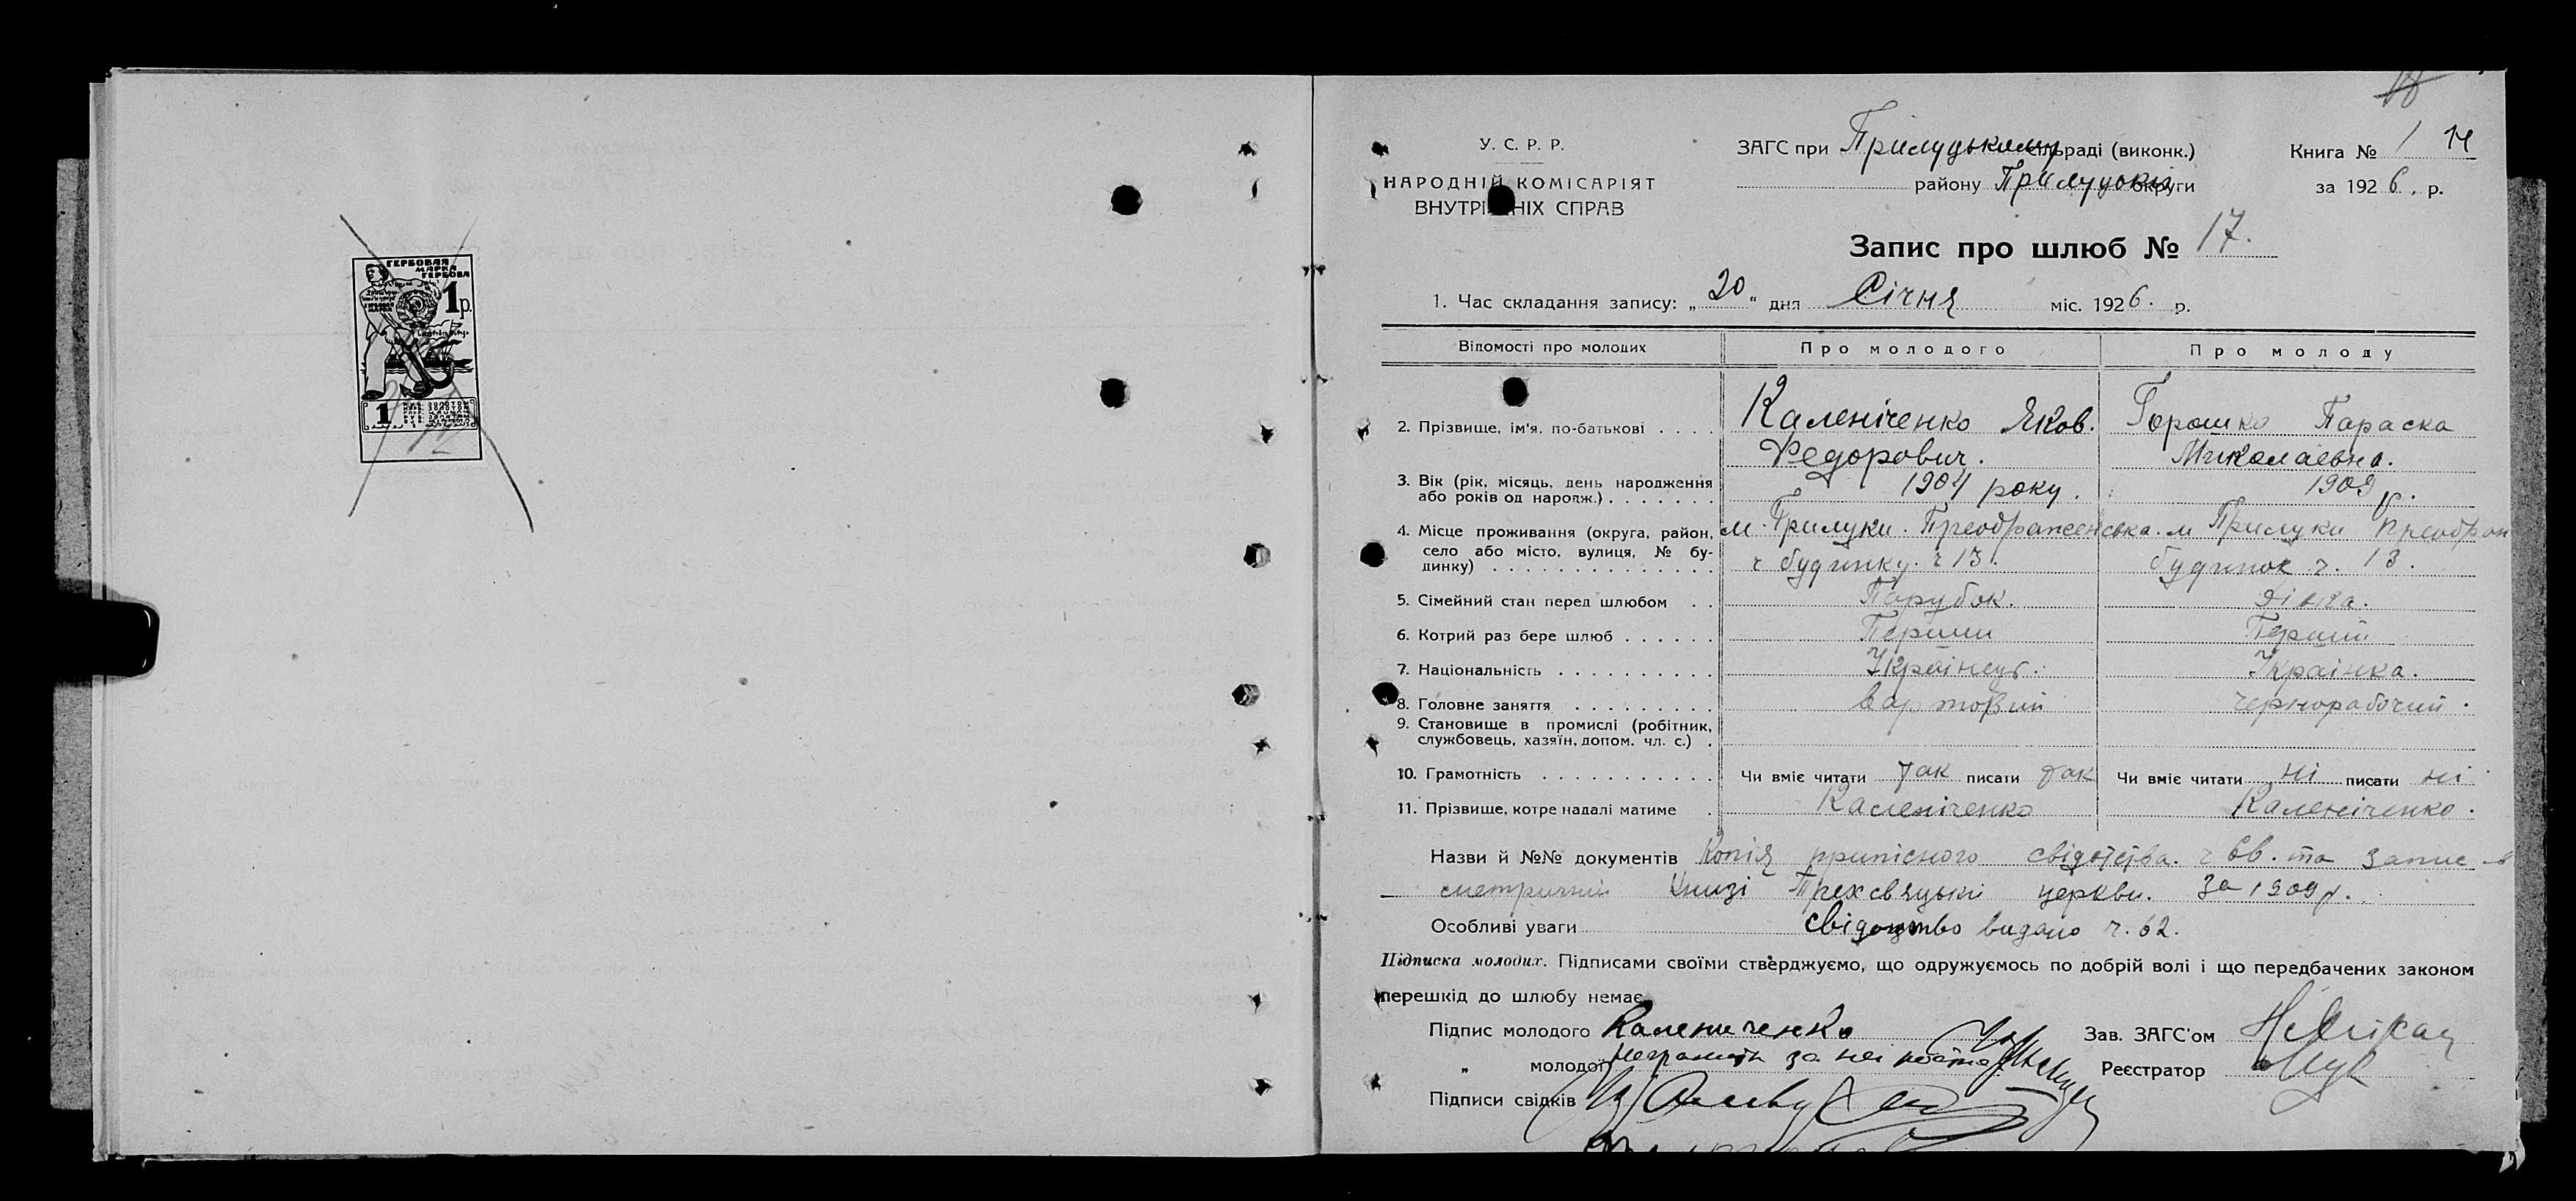 ГЕРБОВАЯ
МАРКА
ГЕРБОВА
1р.
1
У. С. Р. Р.
НАРОДНІЙ КОМІСАРІЯТ
ВНУТРІШНІХ СПРАВ
ЗАГС при Прилуцькому сільраді (виконк.)
району Прилуцькій округи
Книга № 1 14
за 1926. р.
Запис про шлюб № 17.
1. Час складання запису: „20“ дня Січня міс. 1926. р.
Відомості про молодих Про молодого Про молоду
2. Прізвище, ім'я, по-батькові . . . . Каленіченко Яков. Горошко Параска
Федорович. Миколаевна.
3. Вік (рік, місяць, день народження
або років од народж.) . . . . . . . 1904 року. 1909 р.
4. Місце проживання (округа, район, м. Прилуки. Преображенська. м Прилуки Преображ
село або місто, вулиця, № бу-
динку) . . . . . . . . . . . . . . . ч будинку. ч 13. будинок ч. 13.
5. Сімейний стан перед шлюбом . . Парубок. Дівча.
6. Котрий раз бере шлюб . . . . . . Перший Перший
7. Національність . . . . . . . . . . Українець. Українка.
8. Головне заняття . . . . . . . . . Вартовий чернорабочий.
9. Становище в промислі (робітник,
службовець, хазяїн, допом. чл. с.) .
10. Грамотність . . . . . . . . . . . Чи вміє читати так писати так Чи вміє читати ні писати ні
11. Прізвище, котре надалі матиме . Каленіченко Каленіченко.
Назви й №№ документів Копія припісного свідотства. ч 66. та запис в
метричній Книзі Трехсвяцькі церкви. за 1909 р.
Особливі уваги свідоцтво видано ч. 62.
Підписка молодих. Підписами своїми стверджуємо, що одружуємось по добрій волі і що передбачених законом
перешкід до шлюбу немає
Підпис молодого Калениченко Зав. ЗАГС'ом
„ молодої неграмотн за неі Реєстратор
Підписи свідків